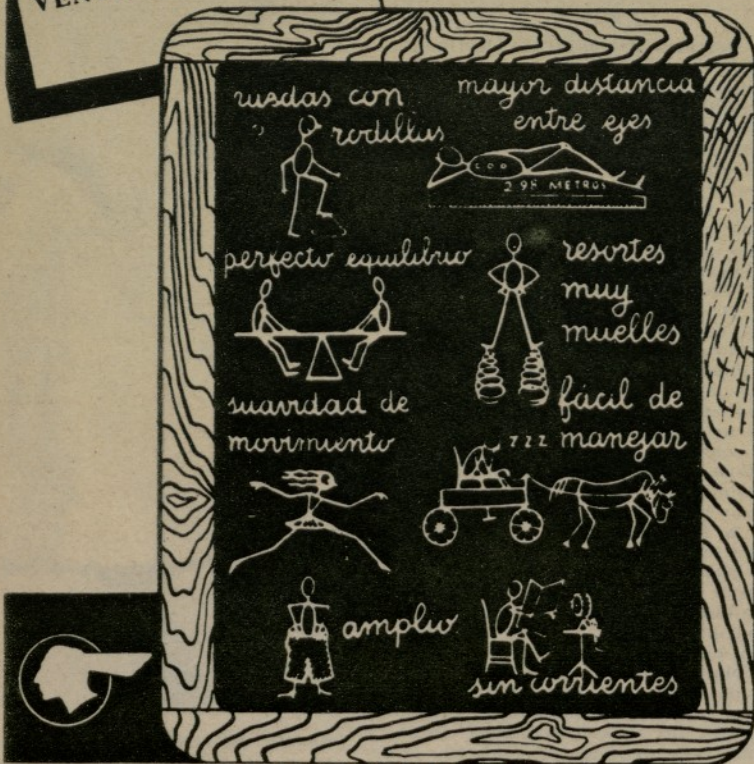 VEN
ruedas con
rodillas
mayor distancia
entre ejes
2 98 METROS
perfecto equilibrio
resortes
muy
muelles
suavidad de
movimiento
fácil de
zzz manejar
amplio
sin corrientes